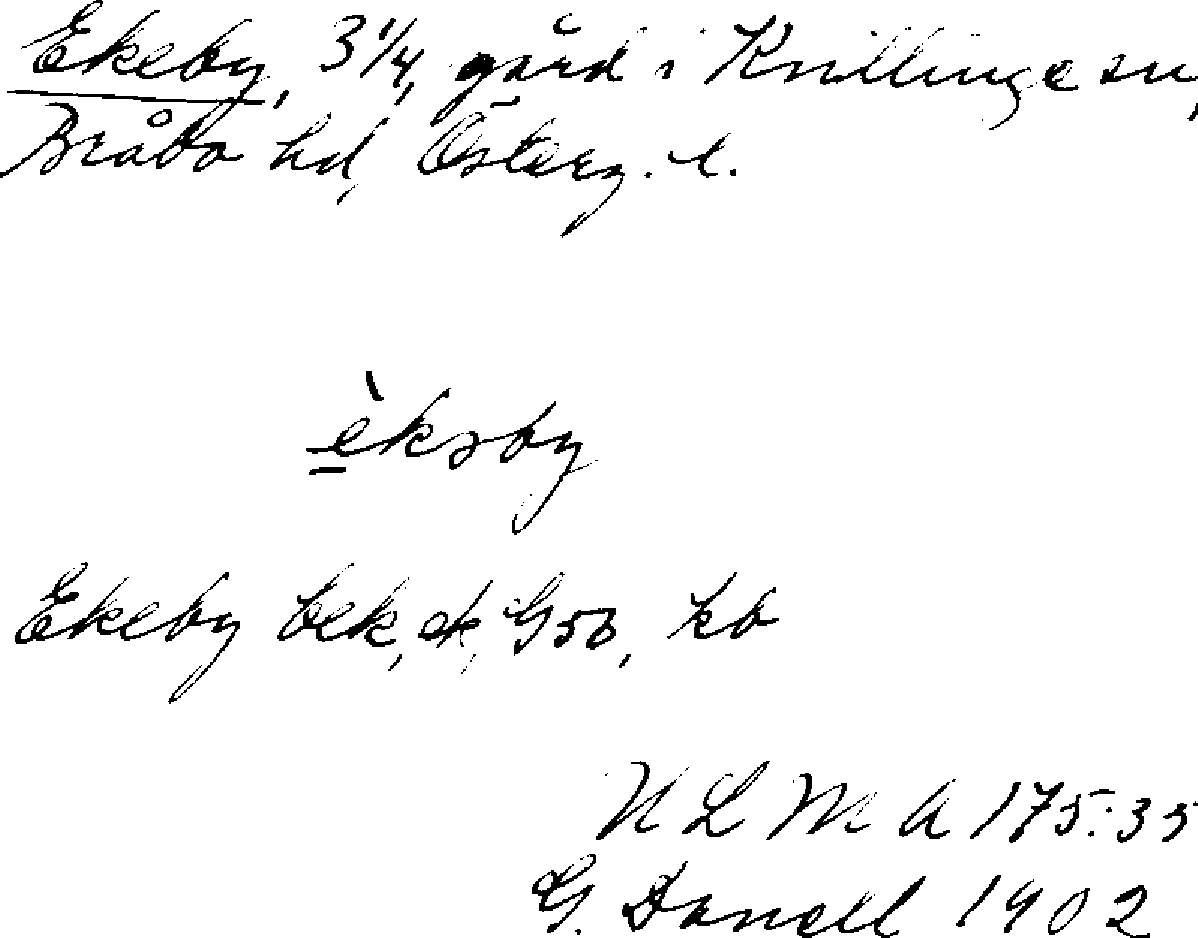 Ekeby, 3 1/4, gård i Kvillinge sn,
Bråbo hd, Österg. l.
èkəby
Ekeby bek, ek, G50, kb
ULMA 175:35
G. Danell 1902